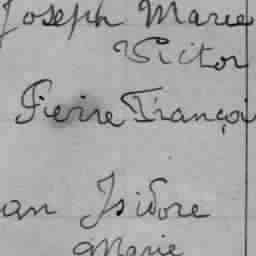 Joseph Marie
Victor
Pierre Françoi
an Isidore
Marie